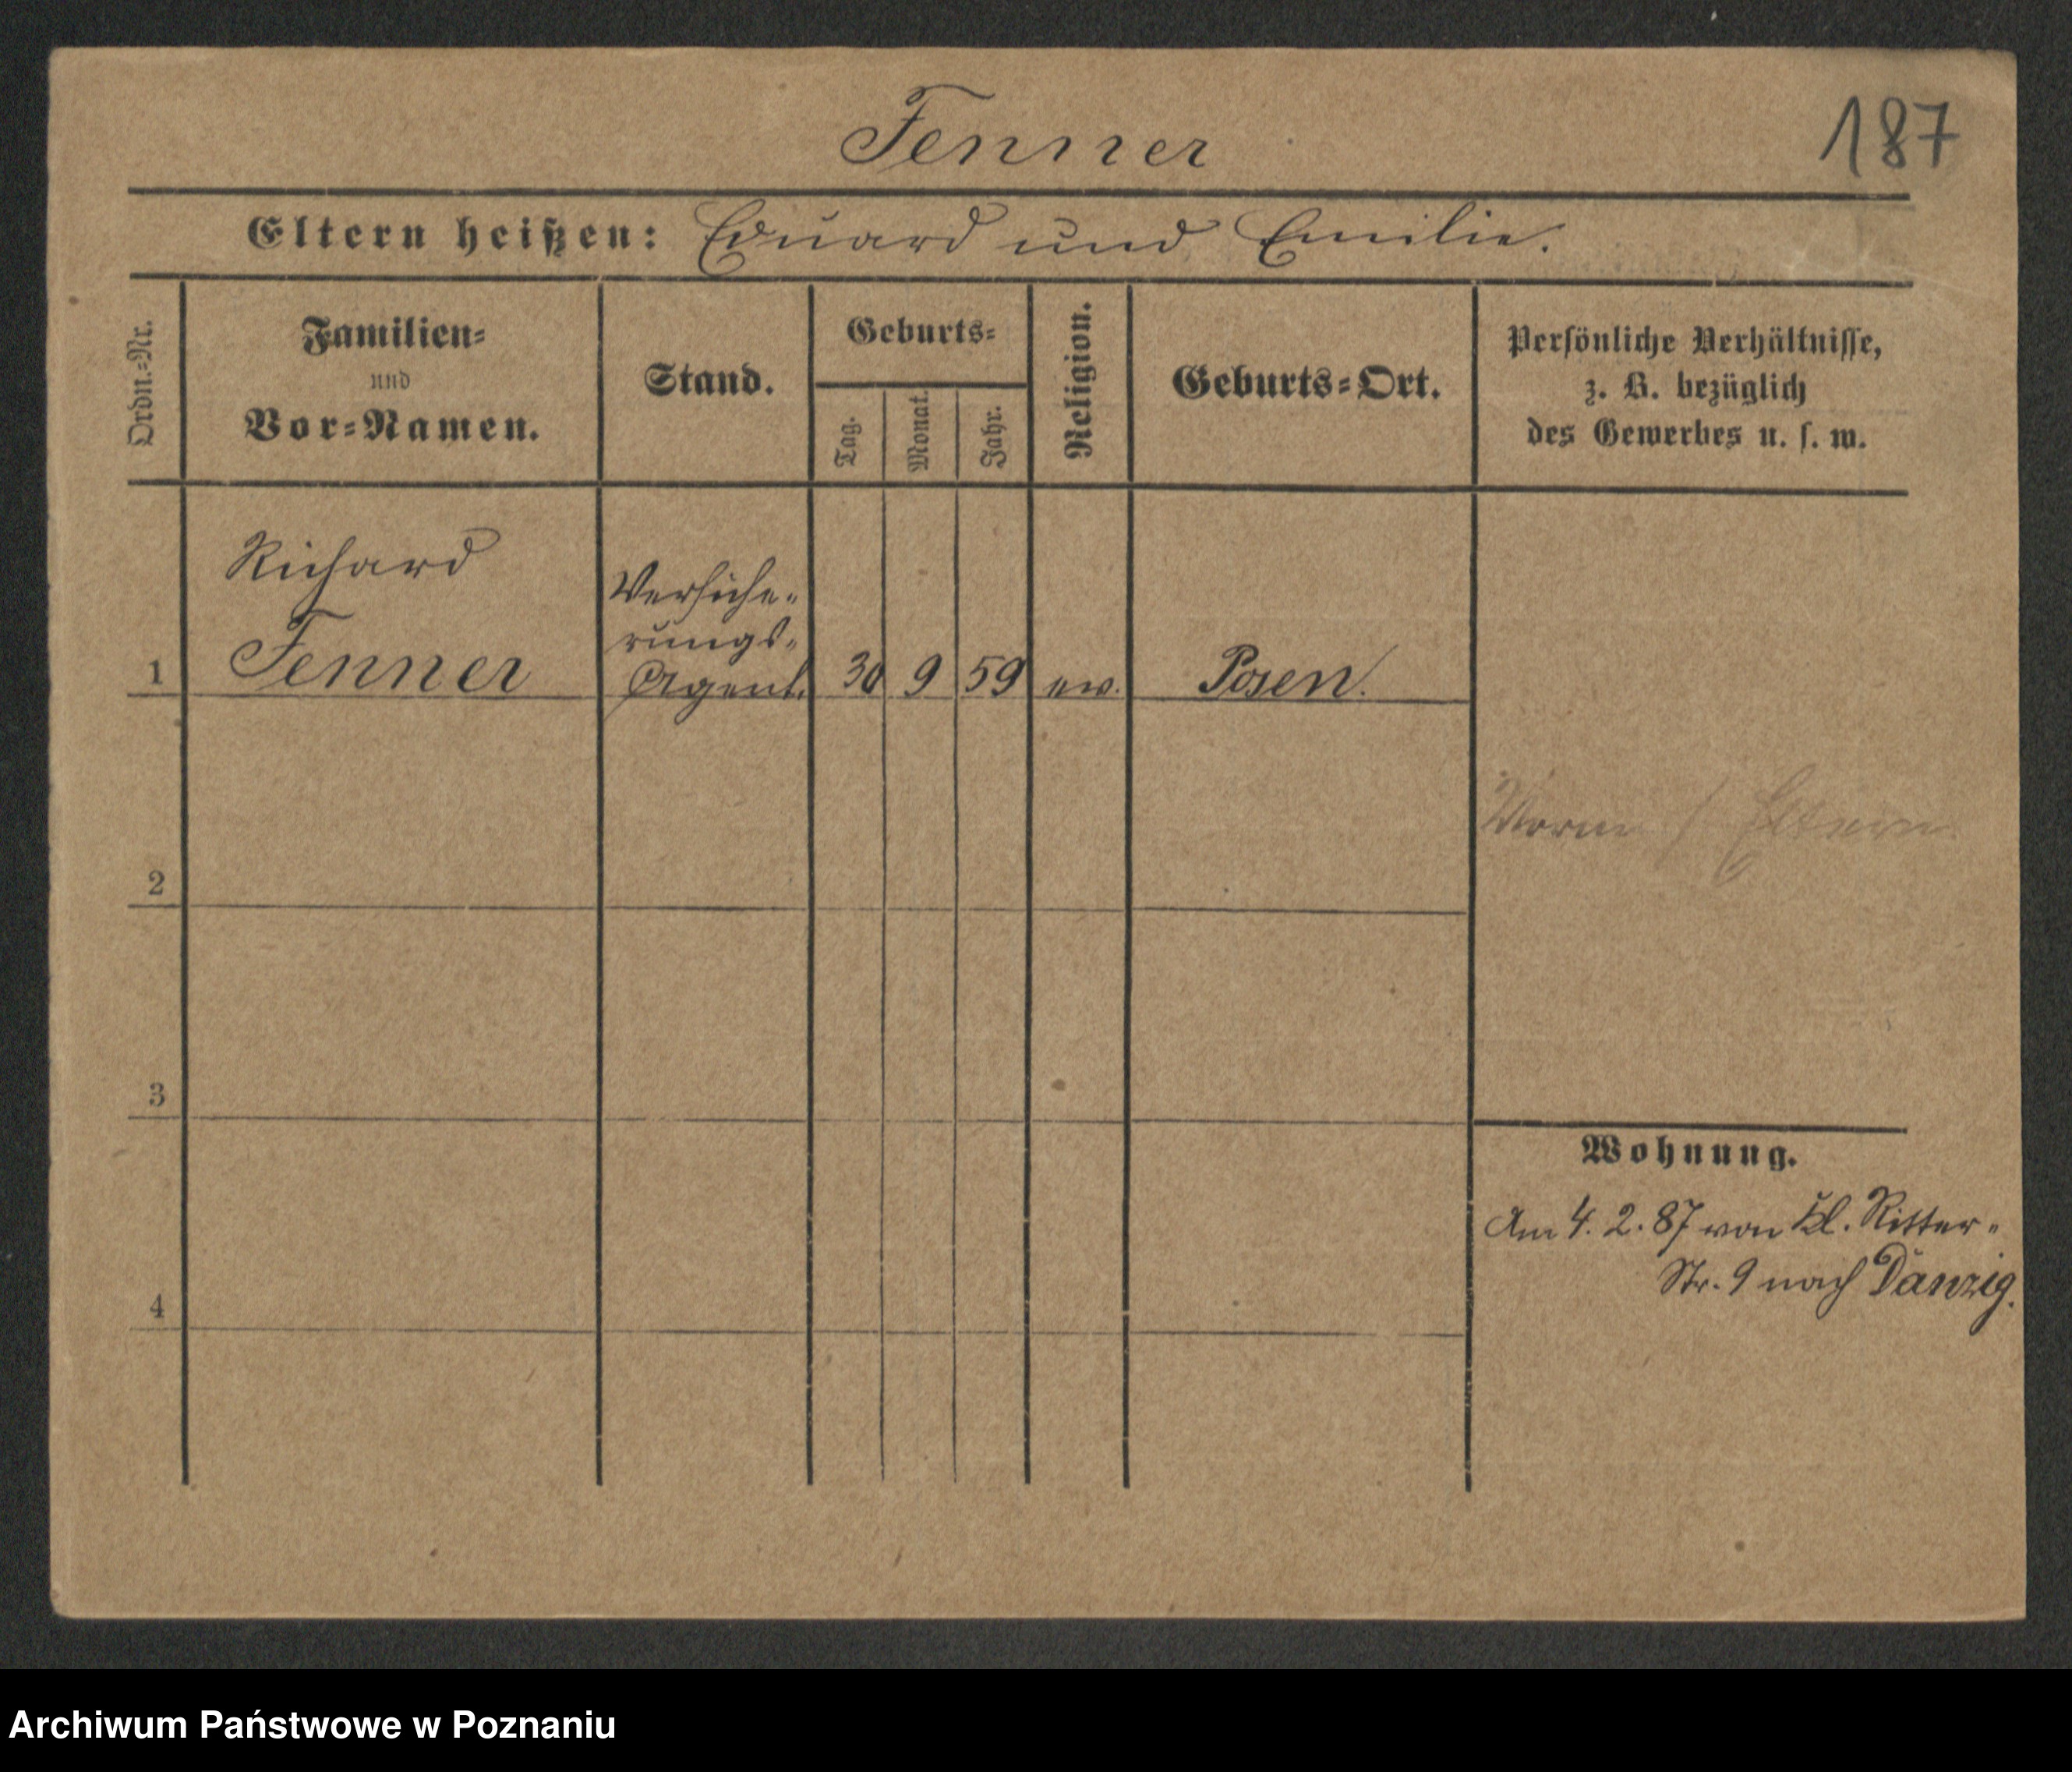 Fenner
187
Eltern heißen: Eduard und Emilie.
Ordn.-Nr.
Familien-
und
Vor-Namen.
Stand.
Geburts-
Tag.
Monat.
Jahr.
Religion.
Geburts-Ort.
Persönliche Verhältnisse,
z. B. bezüglich
des Gewerbes u. s. w.
Richard
Versiche-
rungs-
1 Fenner Agent. 30 9 59 ev. Posen.
Eltern
2
3
Wohnung.
Am 4. 2. 87 von Kl. Ritter-
Str. 9 nach Danzig.
4
Archiwum Państwowe w Poznaniu